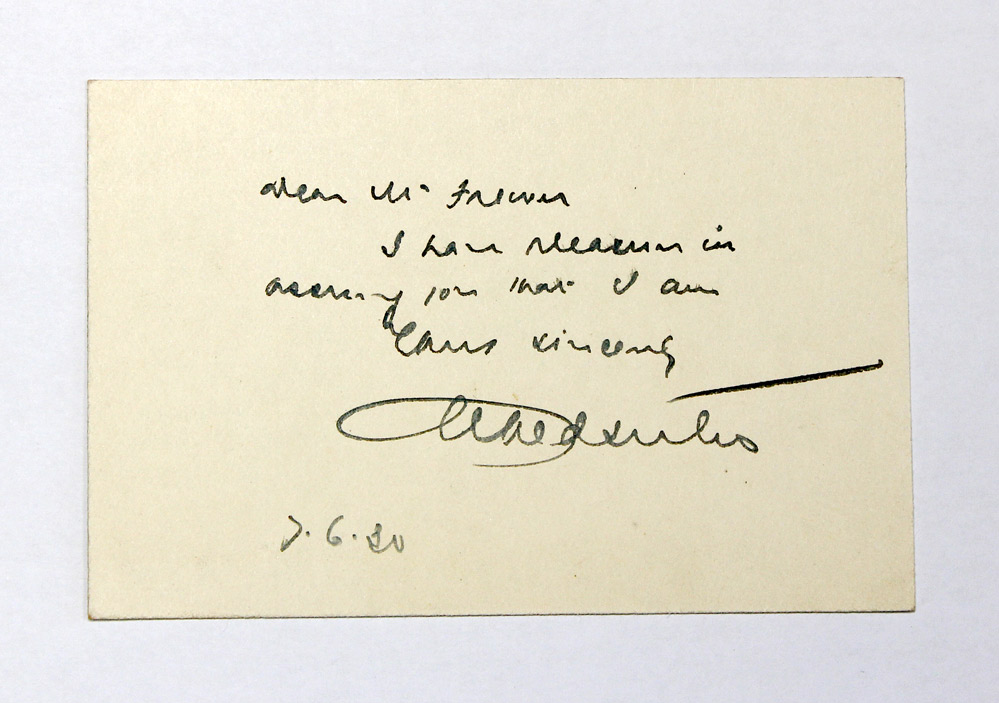 Dear Mr Frewer
I have pleasure in
assuring you that I am
Yours sincerely
7.6.20